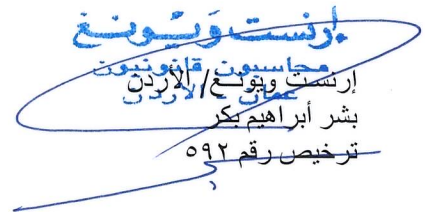 إرنست وَيّونغ
محاسبون قانونيون
عمان - الأردن
إرنست ويونغ/ الأردن
بشر أبراهيم بكر
ترخيص رقم ٥٩٢